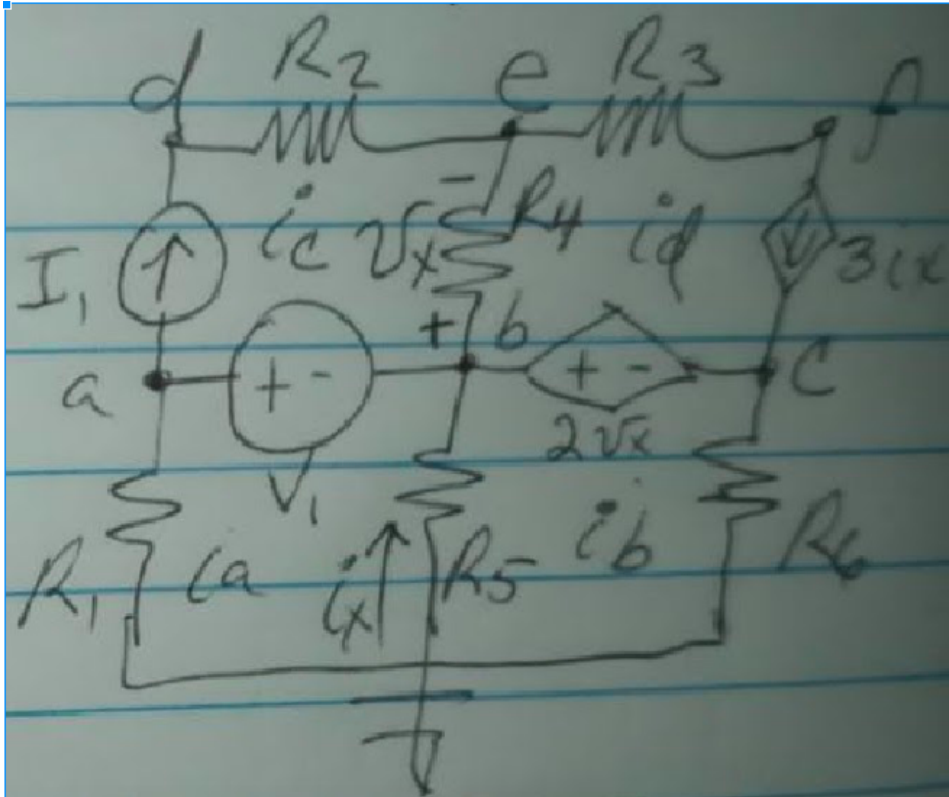 d R2 e R3 f
I1 ic - R4 id 3ix
vx
+ b
a + - + - c
V1 2vx
R1 ia ix R5 ib R6